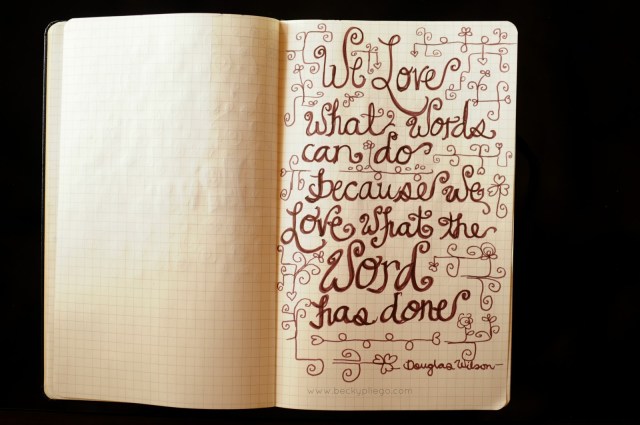 We Love
what words
can do
because we
Love what the
Word
has done
Douglas Wilson
www.beckypliego.com